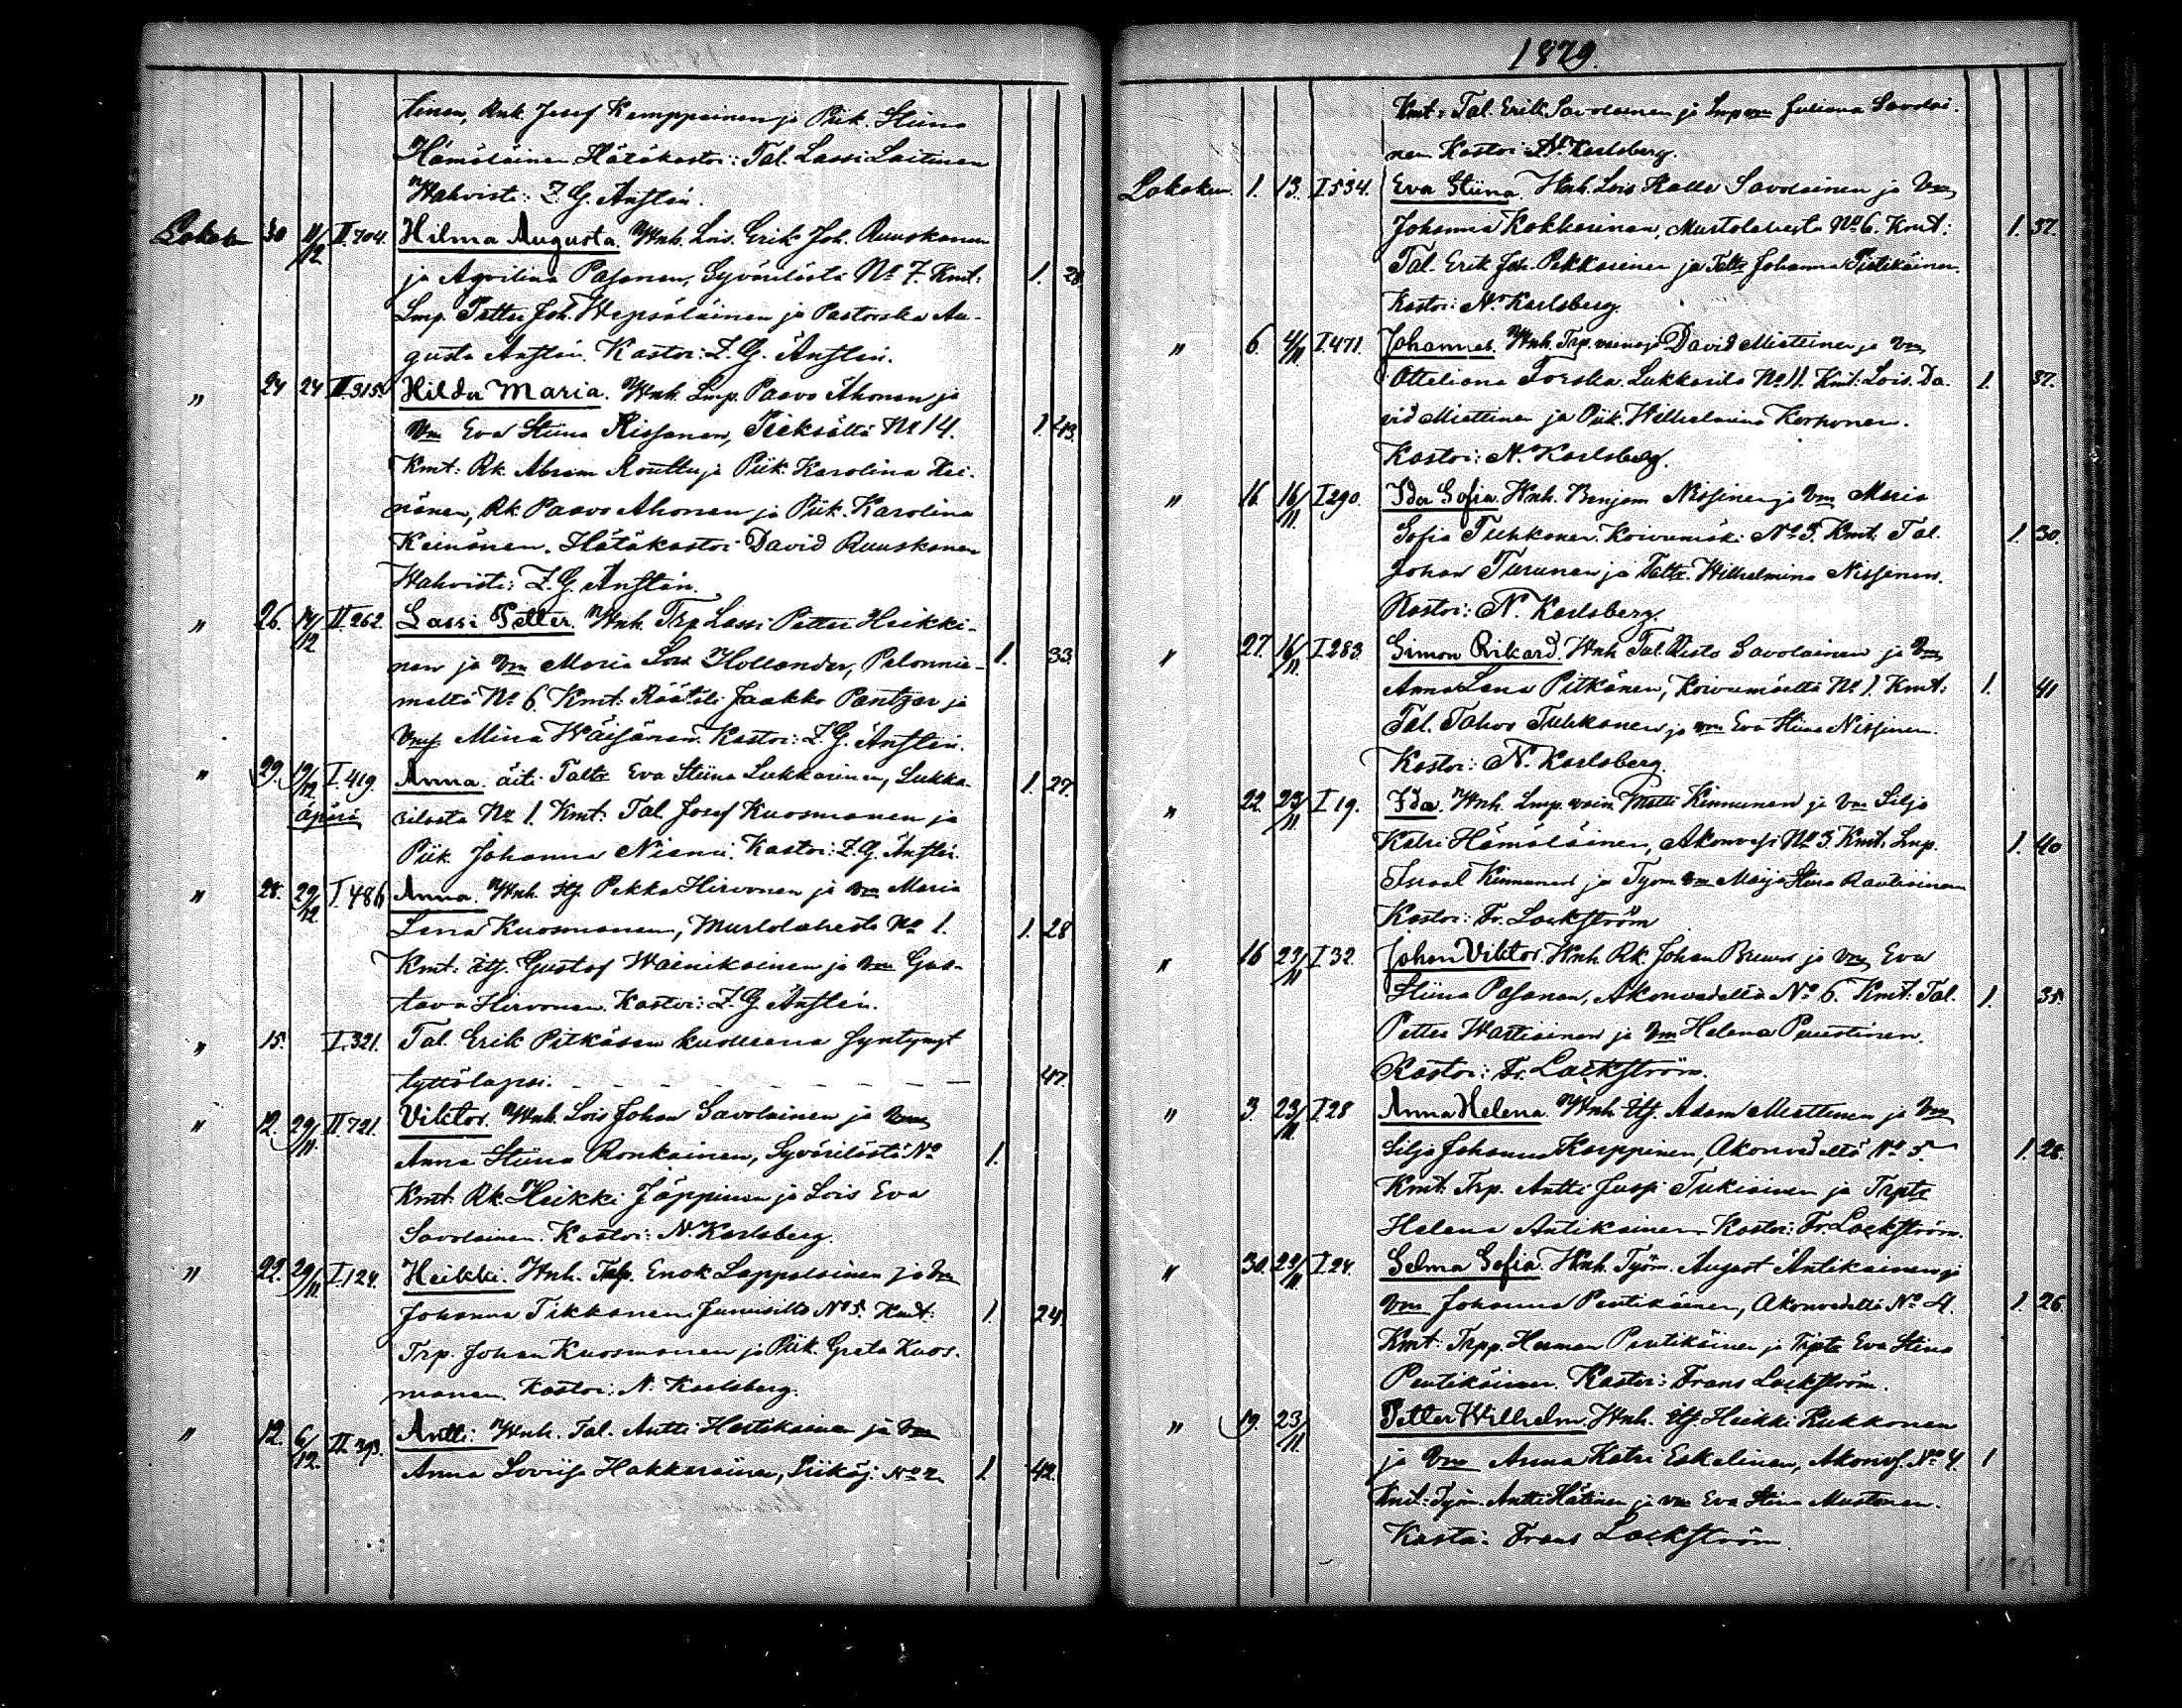 tinen, Rnk. Josef Kemppainen ja Piik. Stiina
Hämäläinen Hätäkastoi: Tal. Lassi Laitinen
Wahvisti: Z. G. Ahsten.
Lokak. 30 11/12 II.704. Hilma Augusta. Wnh. Lois. Erik Joh. Ruuskanen
ja Aqvilina Pasanen, Syvärilästä No 7. Kmt: 1. 28.
Lmp. Petter Joh. Wepsäläinen ja Pastorska Au-
gusta Ahsten. Kastoi: Z. G. Ahsten.
" 24 24 II 315. Hilda Maria. Wnh. Lmp. Paavo Ahonen ja
Vm Eva Stiina Rissanen, Pieksältä No 14. 1. 43.
Kmt: Rk. Abram Routtu ja Piik. Karolina Kei-
nänen, Rk. Paavo Ahonen ja Piik. Karolina
Keinänen. Hätäkastoi David Ruuskanen
Wahvisti: Z. G. Ahsten.
" 26. 14/12 II.262. Lassi Petter. Wnh. Trp. Lassi Petter Heikki-
nen ja Vm Maria Lov. Hollander, Palonnie- 1. 33.
meltä No 6. Kmt: Räätäli Jaakko Pantzar ja
Miina Wäisänen. Kastoi: Z. G. Ahsten.
" 29. 19/12 I.419. Anna. äiti Taltr Eva Stiina Lukkarinen, Lukka- 1. 27.
äpärä rilasta No 1. Kmt: Tal. Josef Kuosmanen ja
Piik. Johanna Niemi. Kastoi: Z. G. Ahsten.
" 28. 29/12 I.486 Anna. Wnh. Itj. Pekka Hirvonen ja Vm Maria
Lena Kuosmanen, Murtolahesta No 1. 1. 28
Kmt: Itj. Gustaf Wäinikainen ja Vm Gus-
tava Hirvonen. Kastoi: Z. G. Ahsten.
" 15. I.321. Tal. Erik Pitkäsen kuolleena syntynyt
tyttölapsi. 47.
" 12. 29/11. II.721. Viktor. Wnh. Lois Johan Savolainen ja Vm
Anna Stiina Ronkainen, Syvärilästä No 1.
Kmt. Rk. Heikki Jäppinen ja Lois Eva
Savolainen. Kastoi: N. Karlsberg.
" 22. 29/11 I.124. Heikki. Wnh. Enok Lappalainen ja Vm
Johanna Tikkanen No 5. Kmt: 1. 24.
Trp. Johan Kuosmanen ja Piik. Greta Kuos-
manen. Kastoi: N. Karlsberg.
" 12. 6/12. II.393. Antti: Wnh. Tal. Antti Hartikainen ja Vm
Anna Loviisa Hakkarainen, No 2 1. 42.
1879.
Kmt: Tal. Erik Savolainen ja Juliana Savolai-
nen Kastoi N. Karlsberg.
Lokakuu. 1. 13. I 534. Eva Stiina. Wnh. Lois Kalle Savolainen ja Vm
Johanna Kokkarinen, Murtolahesta No 6. Kmt: 1. 37.
Tal. Erik Joh. Pekkarinen ja Taltr Johanna Pentikäinen.
Kastoi: N. Karlsberg.
" 6. 4/11 I.471. Johannes. Wnh. Trp. vainaja David Miettinen ja Vm
Otteliana Torska. Lukkarila No 11. Kmt: Lois. Da- 1. 37.
vid Miettinen ja Piik. Wilhelmina Korhonen.
Kastoi: N. Karlsberg.
" 16. 16/11 I.290. Ida Sofia. Wnh. Benjam Nissinen ja Vm Maria
Sofia Tuhkanen. Koivumäki No 3. Kmt: Tal. 1. 30.
Johan Turunen ja Taltr. Wilhelmina Nissinen.
Kastoi: N. Karlsberg.
" 27. 16/11. I.283. Simon Rikard. Wnh Tal. Risto Savolainen ja Vm
Anna Lena Pitkänen, Koivumäeltä No 1. Kmt: 1. 41
Tal. Tahvo Tuhkanen ja vm Eva Stiina Nissinen.
Kastoi: N. Karlsberg.
" 22. 23/11. I 19. Ida. Wnh. Lmp. vain. Matti Kinnunen ja Vm Silja
Katri Hämäläinen, Akonvesi No 3. Kmt. Lmp. 1. 40
Israel Kinnunen ja Työm. Vm Maija Stina Rautiainen
Kastoi: Fr. Lackström
" 16 23/11 I 32. Johan Viktor. Wnh. Rk. Johan Bruun ja Vm Eva
Stiina Pasanen, Akonvedeltä No 6. Kmt: Tal. 1. 35.
Petter Wartiainen ja Vm Helena Puustinen.
Kastoi: Fr. Lackström.
" 3. 23/11. I 28 Anna Helena. Wnh. Itj. Adam Miettinen ja Vm
Silja Johanna Karppinen, Akonvedeltä No 5. 1. 28.
Kmt: Trp. Antti Jusp. Tukiainen ja Trptr
Helena Antikainen. Kastoi: Fr. Lackström.
" 30. 23/11 I 24. Selma Sofia. Wnh. Työm. August Antikainen ja
Vm Johanna Pentikäinen, Akonvedeltä No 4. 1. 26.
Kmt: Trpp. Herman Pentikäinen ja Trptr Eva Stina
Pentikäinen. Kastoi: Frans Lackström.
" 19. 23/11. Petter Wilhelm. Wnh. Itj. Heikki Rukkonen
ja Vm Anna Katri Eskelinen, Akonv. No 4. 1
Kmt: Työm. Antti Hätinen ja vm Eva Stina Mustonen.
Kastoi: Frans Lackström.